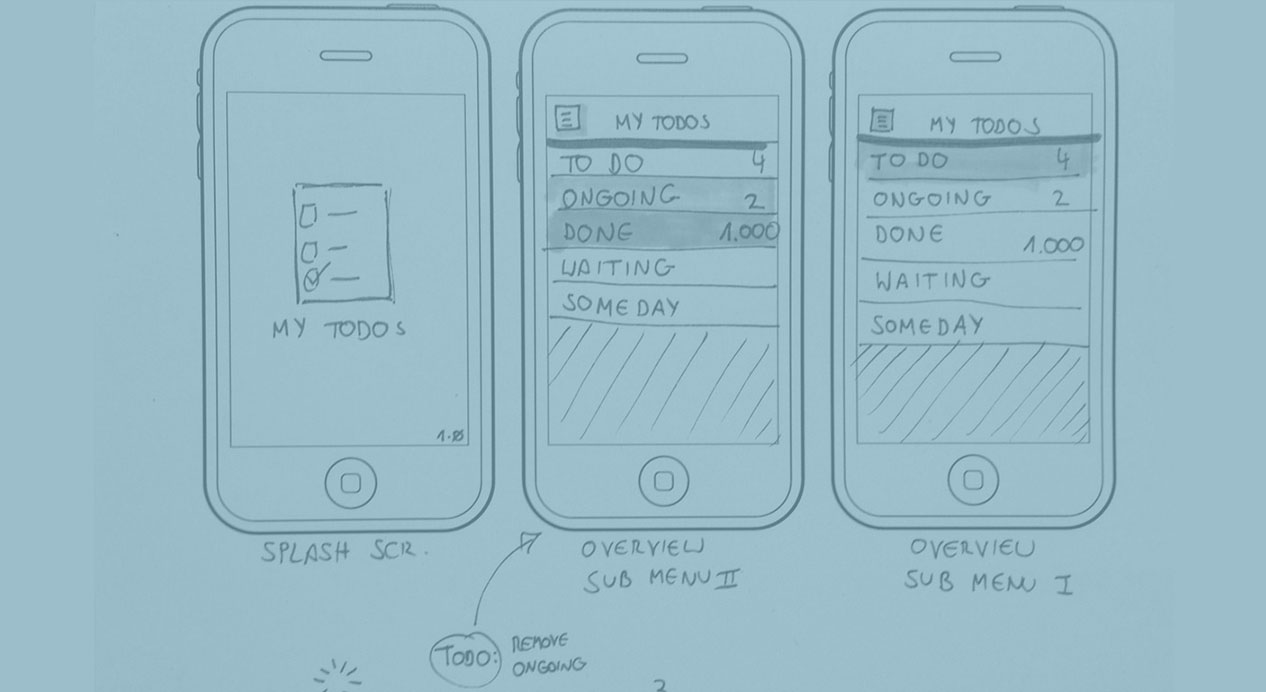 MY TODOS
1.0
SPLASH SCR.
MY TODOS
TO DO 4
ONGOING 2
DONE 1.000
WAITING
SOMEDAY
OVERVIEW
SUB MENU II
MY TODOS
TO DO 4
ONGOING 2
DONE 1.000
WAITING
SOMEDAY
OVERVIEW
SUB MENU I
TODO: REMOVE
ONGOING